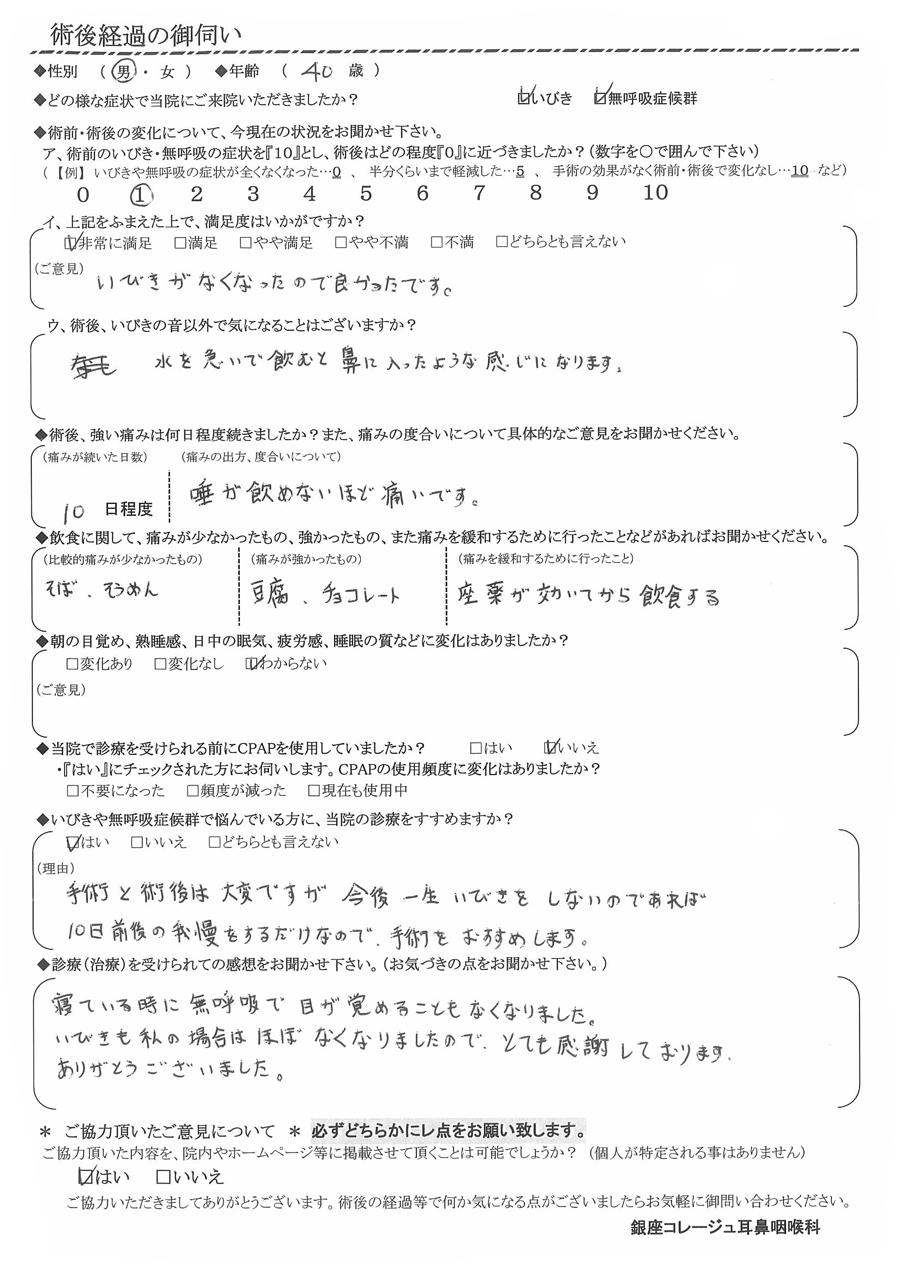 術後経過の御伺い
◆性別 （ 男 ・ 女 ） ◆年齢 （ 40 歳 ）
◆どの様な症状で当院にご来院いただきましたか？ ☑いびき ☑無呼吸症候群
◆術前・術後の変化について、今現在の状況をお聞かせ下さい。
ア、術前のいびき・無呼吸の症状を『10』とし、術後はどの程度『0』に近づきましたか？（数字を○で囲んで下さい）
（ 【例】 いびきや無呼吸の症状が全くなくなった…0 、 半分くらいまで軽減した…5 、 手術の効果がなく術前・術後で変化なし…10 など）
0 ① 2 3 4 5 6 7 8 9 10
イ、上記をふまえた上で、満足度はいかがですか？
☑非常に満足 □満足 □やや満足 □やや不満 □不満 □どちらとも言えない
（ご意見）
いびきがなくなったので良かったです。
ウ、術後、いびきの音以外で気になることはございますか？
水を急いで飲むと鼻に入ったような感じになります。
◆術後、強い痛みは何日程度続きましたか？また、痛みの度合いについて具体的なご意見をお聞かせください。
（痛みが続いた日数） （痛みの出方、度合いについて）
10 日程度 唾が飲めないほど痛いです。
◆飲食に関して、痛みが少なかったもの、強かったもの、また痛みを緩和するために行ったことなどがあればお聞かせください。
（比較的痛みが少なかったもの） （痛みが強かったもの） （痛みを緩和するために行ったこと）
そば、そうめん 豆腐、チョコレート 座薬が効いてから飲食する
◆朝の目覚め、熟睡感、日中の眠気、疲労感、睡眠の質などに変化はありましたか？
□変化あり □変化なし ☑わからない
（ご意見）
◆当院で診療を受けられる前にCPAPを使用していましたか？ □はい ☑いいえ
・『はい』にチェックされた方にお伺いします。CPAPの使用頻度に変化はありましたか？
□不要になった □頻度が減った □現在も使用中
◆いびきや無呼吸症候群で悩んでいる方に、当院の診療をすすめますか？
☑はい □いいえ □どちらとも言えない
（理由）
手術と術後は大変ですが 今後一生いびきをしないのであれば
10日前後の我慢をするだけなので、手術をおすすめします。
◆診療（治療）を受けられての感想をお聞かせ下さい。（お気づきの点をお聞かせ下さい。）
寝ている時に無呼吸で目が覚めることもなくなりました。
いびきも私の場合はほぼなくなりましたので、とても感謝しております。
ありがとうございました。
＊ ご協力頂いたご意見について ＊ 必ずどちらかにレ点をお願い致します。
ご協力頂いた内容を、院内やホームページ等に掲載させて頂くことは可能でしょうか？ （個人が特定される事はありません）
☑はい □いいえ
ご協力いただきましてありがとうございます。術後の経過等で何か気になる点がございましたらお気軽に御問い合わせください。
銀座コレージュ耳鼻咽喉科